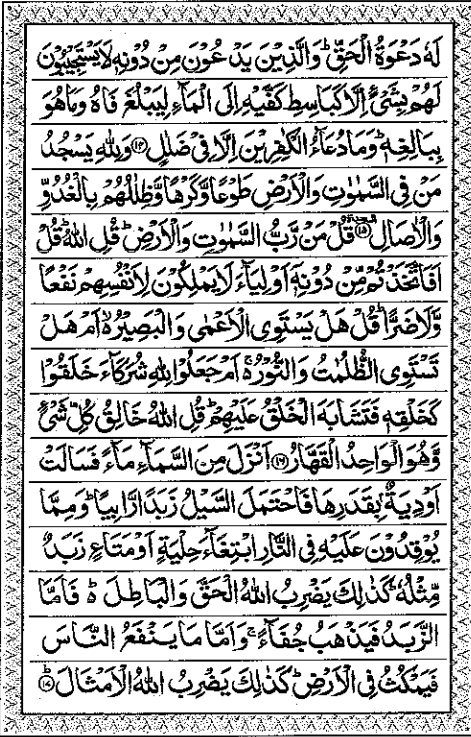 لَهٗ دَعْوَةُ الْحَقِّ ؕ وَالَّذِيْنَ يَدْعُوْنَ مِنْ دُوْنِهٖ لَا يَسْتَجِيْبُوْنَ
لَهُمْ بِشَيْءٍ اِلَّا كَبَاسِطِ كَفَّيْهِ اِلَى الْمَآءِ لِيَبْلُغَ فَاهُ وَمَا هُوَ
بِبَالِغِهٖ ؕ وَمَا دُعَآءُ الْكٰفِرِيْنَ اِلَّا فِيْ ضَلٰلٍ ﴿۱۴﴾ وَلِلّٰهِ يَسْجُدُ
مَنْ فِي السَّمٰوٰتِ وَالْاَرْضِ طَوْعًا وَّكَرْهًا وَّظِلٰلُهُمْ بِالْغُدُوِّ
وَالْاٰصَالِ ﴿۱۵﴾ قُلْ مَنْ رَّبُّ السَّمٰوٰتِ وَالْاَرْضِ ؕ قُلِ اللّٰهُ ؕ قُلْ
اَفَاتَّخَذْتُمْ مِّنْ دُوْنِهٖٓ اَوْلِيَآءَ لَا يَمْلِكُوْنَ لِاَنْفُسِهِمْ نَفْعًا
وَّلَا ضَرًّا ؕ قُلْ هَلْ يَسْتَوِي الْاَعْمٰى وَالْبَصِيْرُ ۙ اَمْ هَلْ
تَسْتَوِي الظُّلُمٰتُ وَالنُّوْرُ ۚ اَمْ جَعَلُوْا لِلّٰهِ شُرَكَآءَ خَلَقُوْا
كَخَلْقِهٖ فَتَشَابَهَ الْخَلْقُ عَلَيْهِمْ ؕ قُلِ اللّٰهُ خَالِقُ كُلِّ شَيْءٍ
وَّهُوَ الْوَاحِدُ الْقَهَّارُ ﴿۱۶﴾ اَنْزَلَ مِنَ السَّمَآءِ مَآءً فَسَالَتْ
اَوْدِيَةٌ بِقَدَرِهَا فَاحْتَمَلَ السَّيْلُ زَبَدًا رَّابِيًا ؕ وَمِمَّا
يُوْقِدُوْنَ عَلَيْهِ فِي النَّارِ ابْتِغَآءَ حِلْيَةٍ اَوْ مَتَاعٍ زَبَدٌ
مِّثْلُهٗ ؕ كَذٰلِكَ يَضْرِبُ اللّٰهُ الْحَقَّ وَالْبَاطِلَ ؕ فَاَمَّا
الزَّبَدُ فَيَذْهَبُ جُفَآءً ۚ وَاَمَّا مَا يَنْفَعُ النَّاسَ
فَيَمْكُثُ فِي الْاَرْضِ ؕ كَذٰلِكَ يَضْرِبُ اللّٰهُ الْاَمْثَالَ ؕ ﴿۱۷﴾